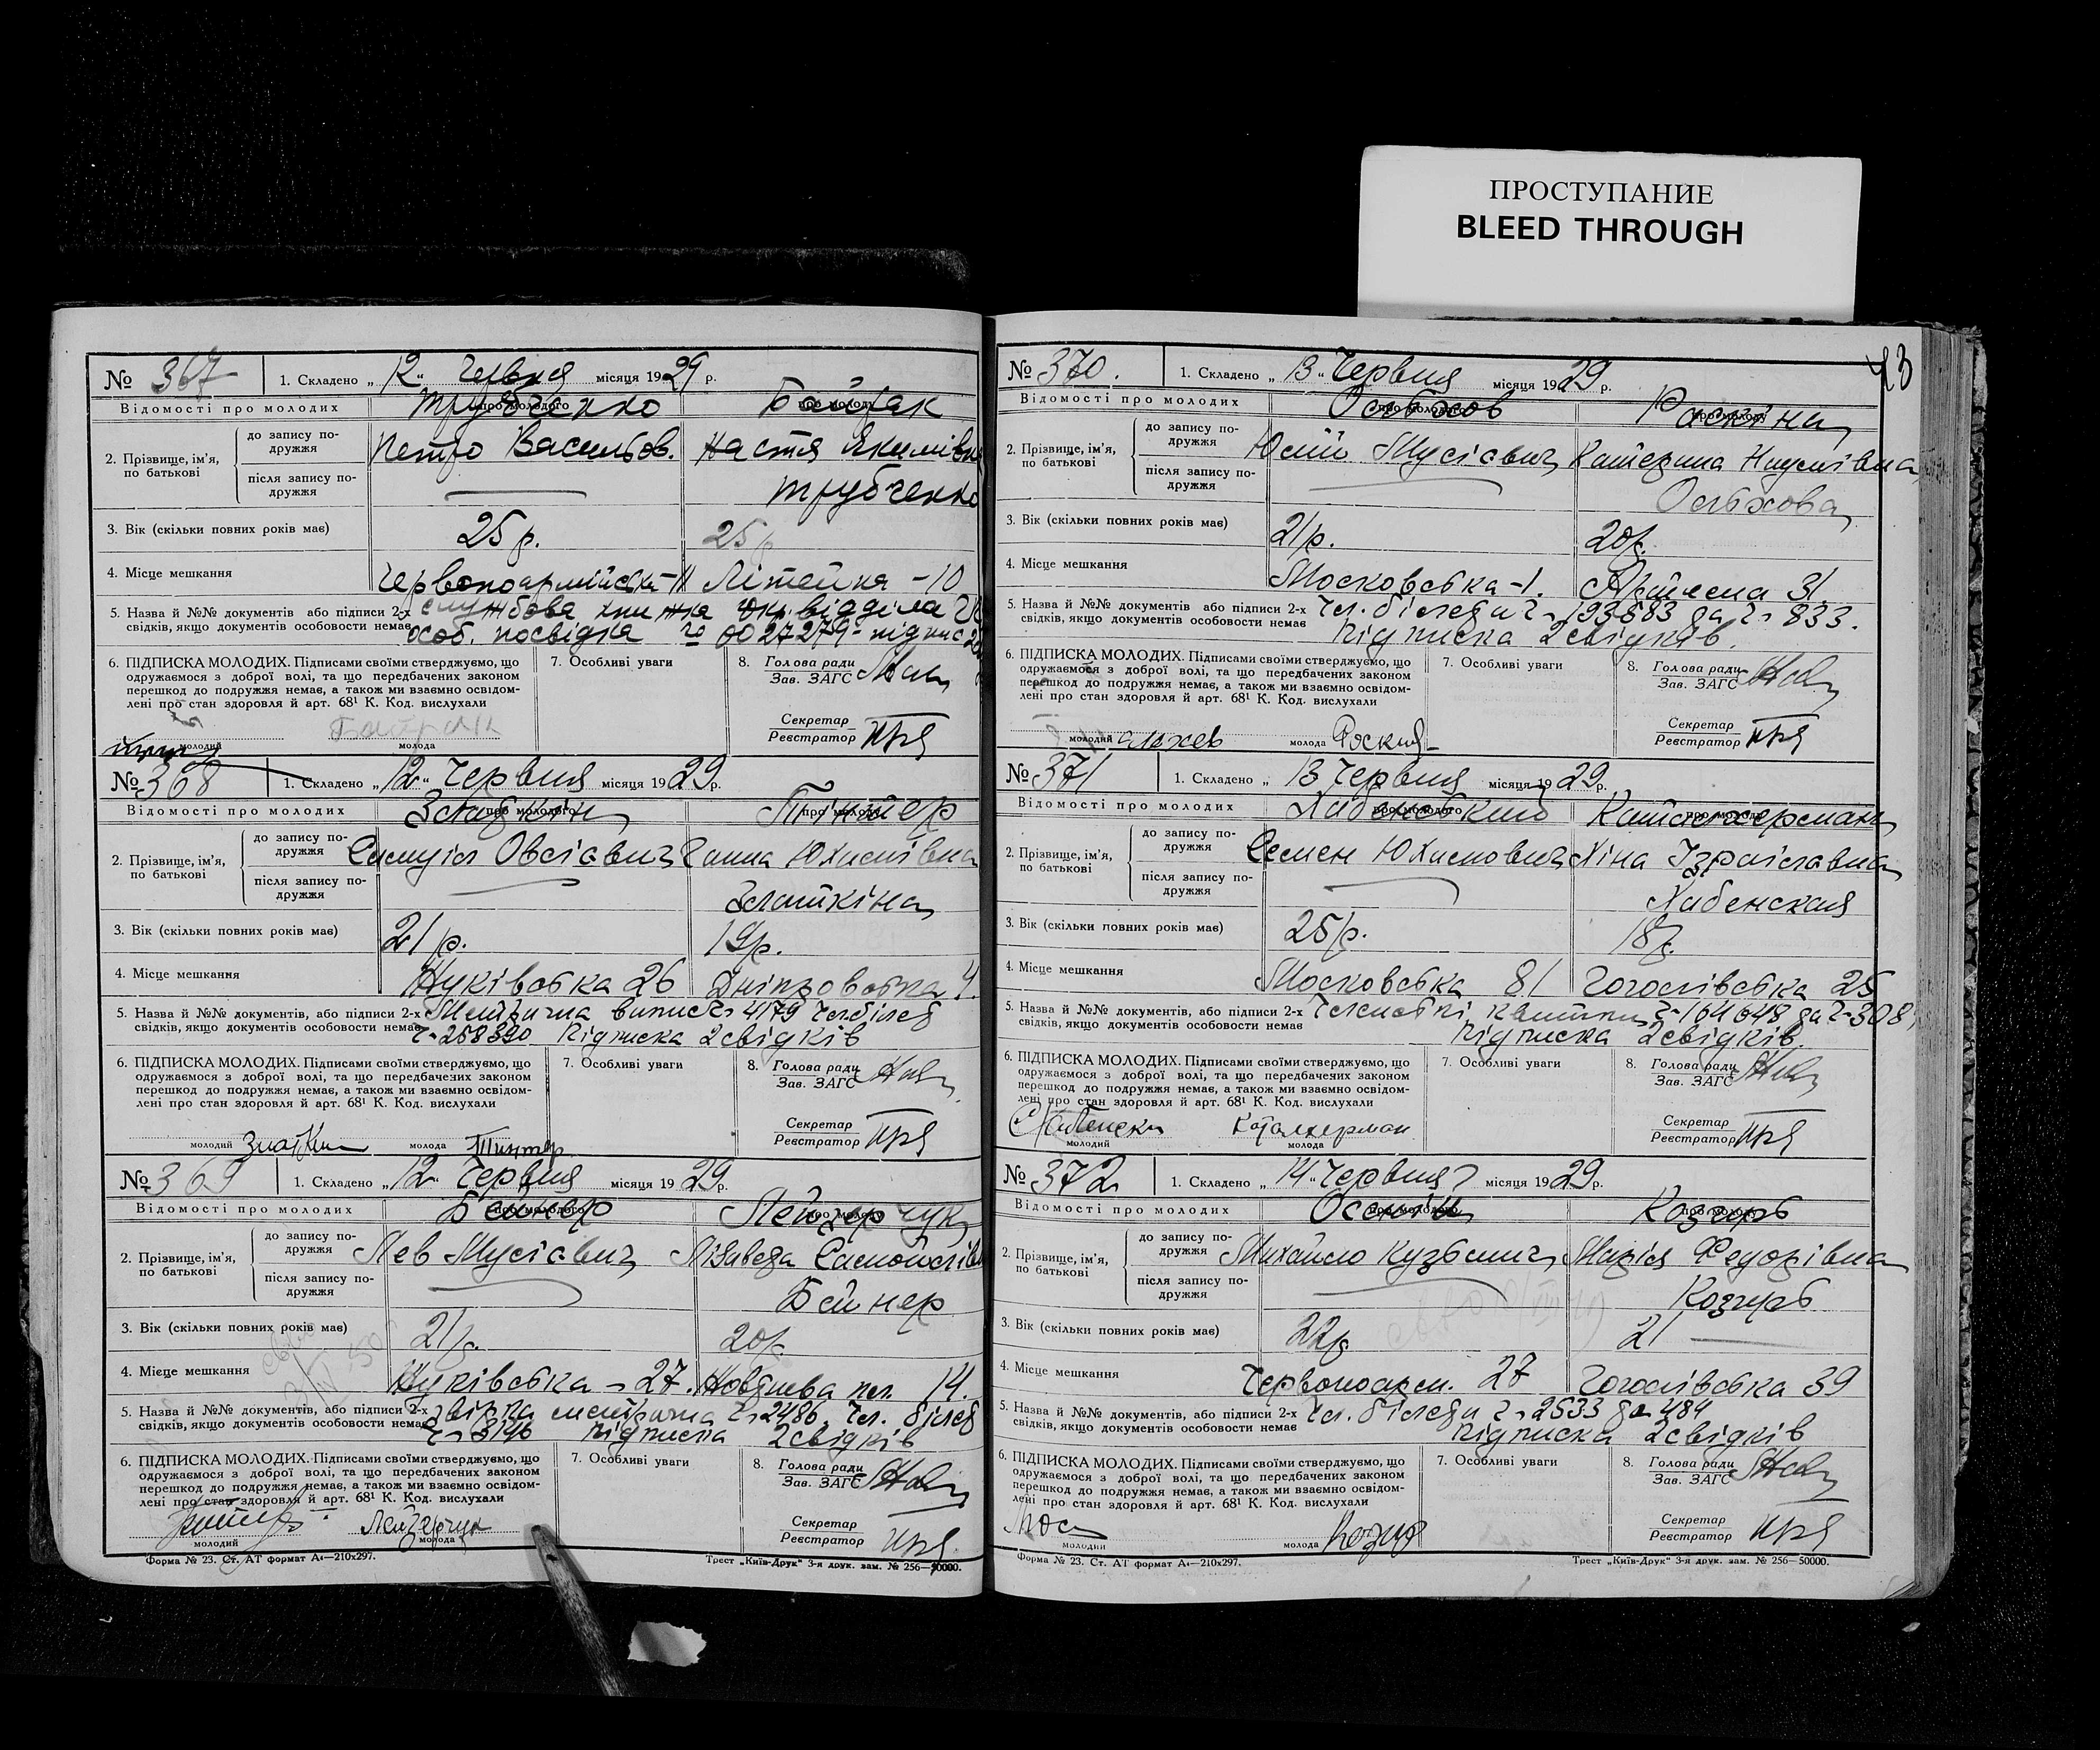 ПРОСТУПАНИЕ
BLEED THROUGH
№ 367
1. Складено „ 12 “ червня місяця 1929 р.
Відомості про молодих
про молодого Трубченко
про молоду
2. Прізвище, ім’я, по батькові
до запису подружжя
Петро Васильов.
Настя Якимівна
після запису подружжя
Трубченко
3. Вік (скільки повних років має)
25 р.
25 р
4. Місце мешкання
Червоноармійська-11
Літейня -10
5. Назва й №№ документів або підписи 2-х
свідків, якщо документів особовости немає
службова книжка окр. відділа
особ. посвідка 0027279 - підпис
6. ПІДПИСКА МОЛОДИХ. Підписами своїми стверджуємо, що
одружаємося з доброї волі, та що передбачених законом
перешкод до подружжя немає, а також ми взаємно освідом-
лені про стан здоровля й арт. 68¹ К. Код. вислухали
молодий
молода
7. Особливі уваги
8. Голова ради
Зав. ЗАГС
Секретар
Реєстратор
№ 368
1. Складено „ 12 “ Червня місяця 1929 р.
Відомості про молодих
про молодого
про молоду
2. Прізвище, ім’я, по батькові
до запису подружжя
Самуіл Овсієвич
Ганна Юхимівна
після запису подружжя
Златкіна
3. Вік (скільки повних років має)
21 р.
19 р.
4. Місце мешкання
Жуківська 26
Дніпровська 4.
5. Назва й №№ документів, або підписи 2-х
свідків, якщо документів особовости немає
Метрична випис ч 4179 Чл. білет
ч-258390 Підписка 2 свідків
6. ПІДПИСКА МОЛОДИХ. Підписами своїми стверджуємо, що
одружаємося з доброї волі, та що передбачених законом
перешкод до подружжя немає, а також ми взаємно освідом-
лені про стан здоровля й арт. 68¹ К. Код. вислухали
молодий Златкин
молода Тинтер
7. Особливі уваги
8. Голова ради
Зав. ЗАГС
Секретар
Реєстратор
№ 369
1. Складено „ 12 “ Червня місяця 1929 р.
Відомості про молодих
про молодого Бейнер
про молоду Лейзерчук
2. Прізвище, ім’я, по батькові
до запису подружжя
Лев Мусієвич
Лізавета Самойлівна
після запису подружжя
Бейнер
3. Вік (скільки повних років має)
21 р.
20 р.
4. Місце мешкання
Жуківська - 27.
14.
5. Назва й №№ документів, або підписи 2-х
свідків, якщо документів особовости немає
метрична ч-2486, чл. білет
ч-3146 підписка 2 свідків
6. ПІДПИСКА МОЛОДИХ. Підписами своїми стверджуємо, що
одружаємося з доброї волі, та що передбачених законом
перешкод до подружжя немає, а також ми взаємно освідом-
лені про стан здоровля й арт. 68¹ К. Код. вислухали
молодий
молода Лейзерчук
7. Особливі уваги
8. Голова ради
Зав. ЗАГС
Секретар
Реєстратор
Форма № 23. Ст. АТ формат А₄—210х297.
Трест „Київ-Друк“ 3-я друк. зам. № 256—50000.
№ 370.
1. Складено „ 13 “ Червня місяця 1929 р.
Відомості про молодих
про молодого Ольхов
про молоду Раскіна
2. Прізвище, ім’я, по батькові
до запису подружжя
Мусієвич
Катерина Наумівна
після запису подружжя
Ольхова
3. Вік (скільки повних років має)
21 р.
20 р.
4. Місце мешкання
Московська -1.
Артема 31.
5. Назва й №№ документів або підписи 2-х
свідків, якщо документів особовости немає
Чл. білети ч-193883 да ч-833.
Підписка 2 свідків.
6. ПІДПИСКА МОЛОДИХ. Підписами своїми стверджуємо, що
одружаємося з доброї волі, та що передбачених законом
перешкод до подружжя немає, а також ми взаємно освідом-
лені про стан здоровля й арт. 68¹ К. Код. вислухали
молодий
молода
7. Особливі уваги
8. Голова ради
Зав. ЗАГС
Секретар
Реєстратор
№ 371
1. Складено „ 13 Червня місяця 1929 р.
Відомості про молодих
про молодого Хабенський
про молоду Катальхерман
2. Прізвище, ім’я, по батькові
до запису подружжя
Семен Юхимович
Хіна Ізраілєвна
після запису подружжя
Хабенская
3. Вік (скільки повних років має)
25 р.
18 р.
4. Місце мешкання
Московська 81
Гоголівська 25
5. Назва й №№ документів, або підписи 2-х
свідків, якщо документів особовости немає
Членські квитки ч-164648 да ч-308,
Підписка 2 свідків.
6. ПІДПИСКА МОЛОДИХ. Підписами своїми стверджуємо, що
одружаємося з доброї волі, та що передбачених законом
перешкод до подружжя немає, а також ми взаємно освідом-
лені про стан здоровля й арт. 68¹ К. Код. вислухали
молодий
молода Каталхерман
7. Особливі уваги
8. Голова ради
Зав. ЗАГС
Секретар
Реєстратор
№ 372
1. Складено „ 14 “ Червня місяця 1929 р.
Відомості про молодих
про молодого
про молоду Козирь
2. Прізвище, ім’я, по батькові
до запису подружжя
Михайло Кузьмич
Марія Федорівна
після запису подружжя
Козирь
3. Вік (скільки повних років має)
22 р
21
4. Місце мешкання
Червоноарм. 27
Гоголівська 39
5. Назва й №№ документів, або підписи 2-х
свідків, якщо документів особовости немає
Чл. білети ч-2533 да 484
Підписка 2 свідків
6. ПІДПИСКА МОЛОДИХ. Підписами своїми стверджуємо, що
одружаємося з доброї волі, та що передбачених законом
перешкод до подружжя немає, а також ми взаємно освідом-
лені про стан здоровля й арт. 68¹ К. Код. вислухали
молодий
молода Козир
7. Особливі уваги
8. Голова ради
Зав. ЗАГС
Секретар
Реєстратор
Форма № 23. Ст. АТ формат А₄—210х297.
Трест „Київ-Друк“ 3-я друк. зам. № 256—50000.